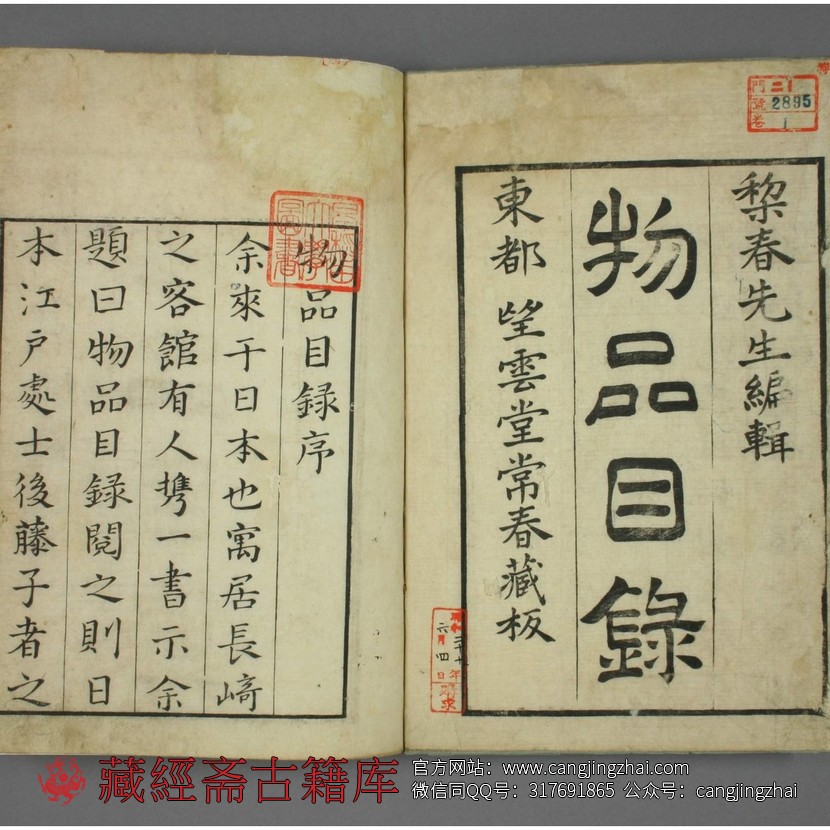 黎春先生編輯
物品目錄
東都 望雲堂常春藏板
物品目録序
余來于日本也寓居長﨑
之客館有人携一書示余
題曰物品目録閲之則日
本江戸處士後藤子者之
門 二一
號 2895
卷 1
六月四日
藏經斋古籍库
官方网站：www.cangjingzhai.com
微信同QQ号：317691865 公众号：cangjingzhai